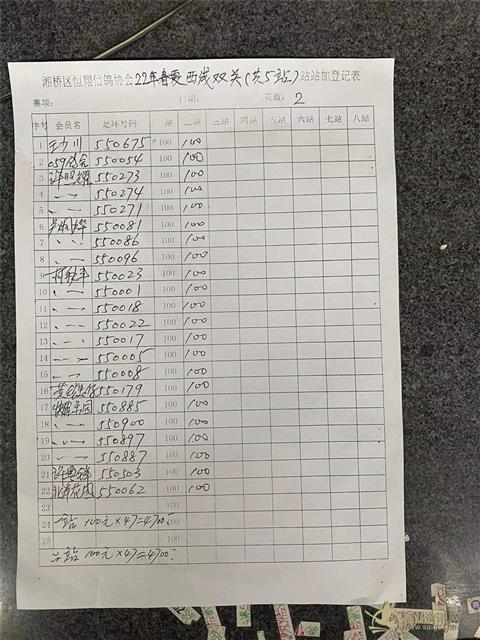 湘桥区恒翔信鸽协会22年春季西线双关(共5站)站站加登记表
赛项: 日期: 页数: 2
序号 会员名 足环号码 一站 二站 三站 四站 五站 六站 七站 八站
1 王少川 550675 100 100
2 550054 100 100
3 550273 100 100
4 〃 550274 100 100
5 〃 550271 100 100
6 550081 100 100
7 〃 550086 100 100
8 〃 550096 100 100
9 550023 100 100
10 〃 550001 100 100
11 〃 550018 100 100
12 〃 550022 100 100
13 〃 550017 100 100
14 〃 550005 100 100
15 〃 550008 100 100
16 550179 100 100
17 550885 100 100
18 〃 550900 100 100
19 〃 550897 100 100
20 〃 550887 100 100
21 550503 100 100
22 550062 100 100
23 100
24 一站 100元×47=4700: 100
25 100
二站 100元×47=4700: